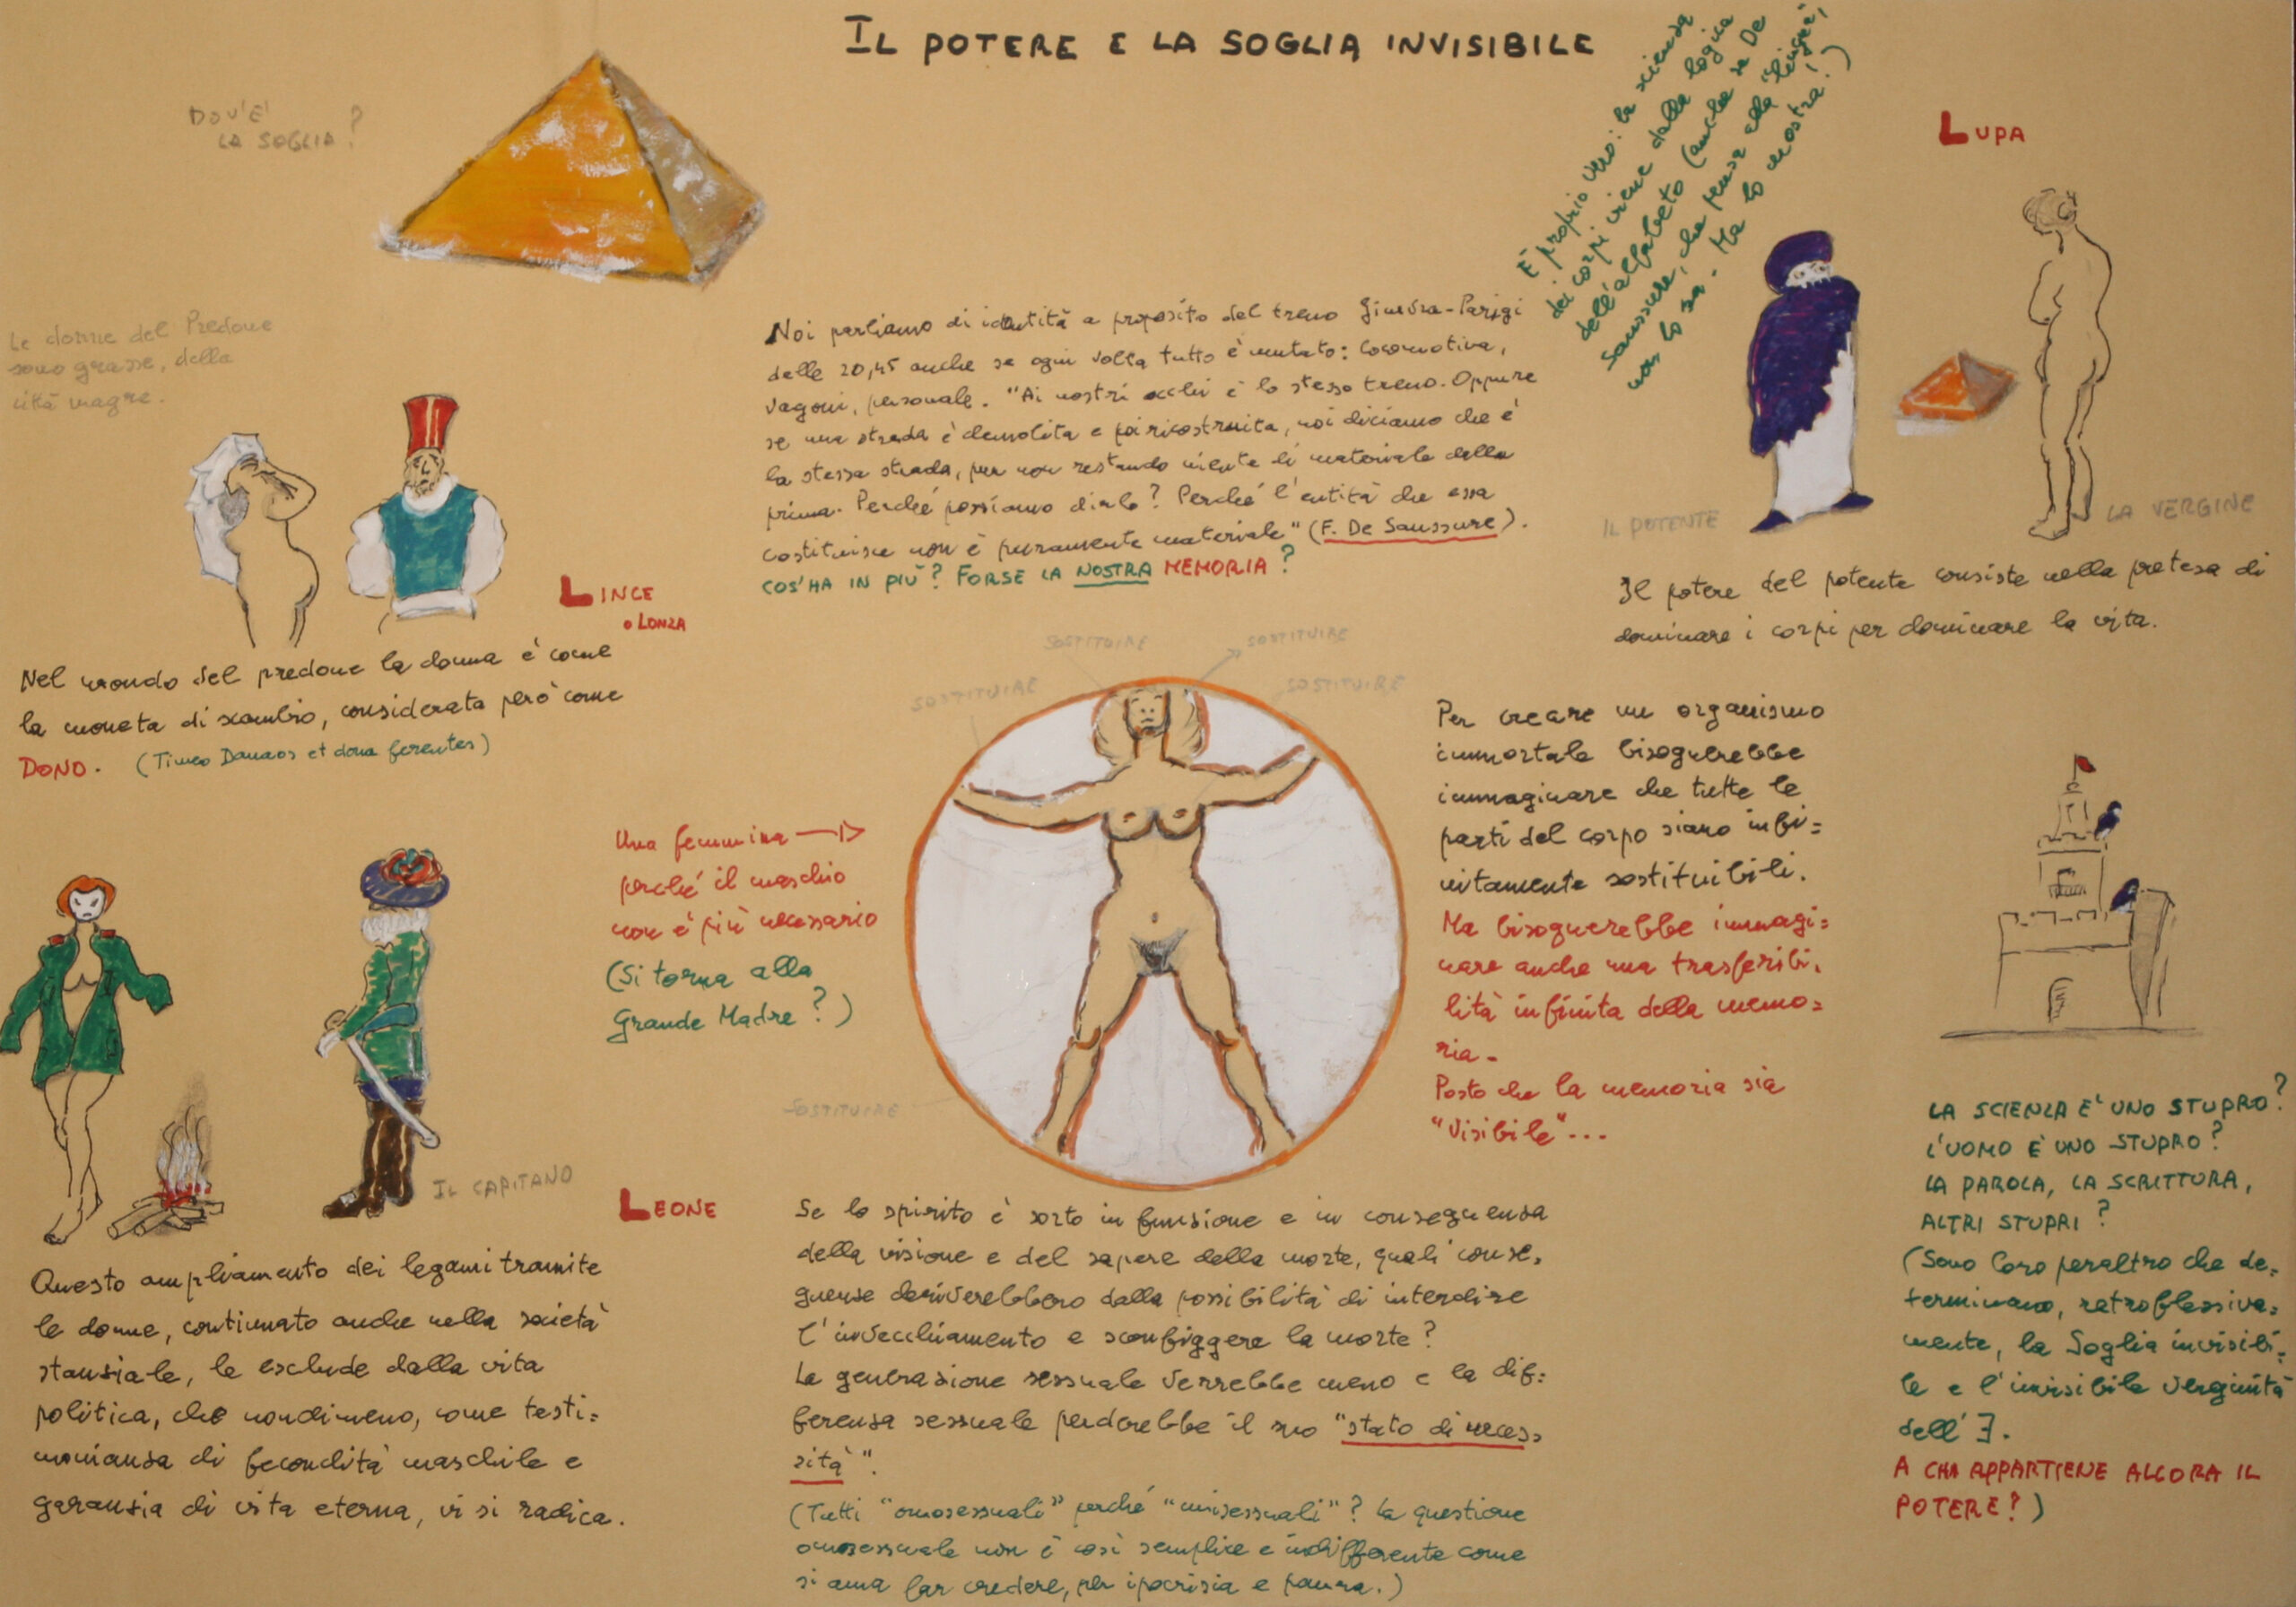 IL POTERE E LA SOGLIA INVISIBILE
DOV'E'
LA SOGLIA?
Le donne del Predone
sono grasse, della
città magre.
LINCE
o LONZA
Nel mondo del predone la donna è come
la moneta di scambio, considerata però come
DONO. (Timeo Danaos et dona ferentes)
IL CAPITANO
LEONE
Questo ampliamento dei legami tramite
le donne, continuato anche nella società
stanziale, le esclude dalla vita
politica, che nondimeno, come testi=
monianza di fecondità maschile e
garanzia di vita eterna, vi si radica.
Noi parliamo di identità a proposito del treno Ginevra-Parigi
delle 20,45 anche se ogni volta tutto è mutato: locomotiva,
vagoni, personale. "Ai nostri occhi è lo stesso treno. Oppure
se una strada è demolita e poi ricostruita, noi diciamo che è
la stessa strada, pur non restando niente di materiale della
prima. Perché possiamo dirlo? Perché l'entità che essa
costituisce non è puramente materiale" (F. De Saussure).
COS'HA IN PIÙ? FORSE LA NOSTRA MEMORIA?
È proprio vero: la scienza
dei corpi viene dalla logica
dell'alfabeto (anche se De
Saussure, che pensa alla lingua,
non lo sa. Ma lo mostra!)
SOSTITUIRE
SOSTITUIRE
SOSTITUIRE
SOSTITUIRE
SOSTITUIRE
Una femmina
perché il maschio
non è più necessario
(Si torna alla
Grande Madre?)
Per creare un organismo
immortale bisognerebbe
immaginare che tutte le
parti del corpo siano infi=
nitamente sostituibili.
Ma bisognerebbe immagi=
nare anche una trasferibi.
lità infinita della memo=
ria.
Posto che la memoria sia
"visibile"...
Se lo spirito è sorto in funzione e in conseguenza
della visione e del sapere della morte, quali conse.
guenze deriverebbero dalla possibilità di interdire
l'invecchiamento e sconfiggere la morte?
La generazione sessuale verrebbe meno e la dif=
ferenza sessuale perderebbe il suo "stato di neces=
sità".
(Tutti "omosessuali" perché "unisessuali"? La questione
omosessuale non è così semplice e indifferente come
si ama far credere, per ipocrisia e paura.)
LUPA
IL POTENTE
LA VERGINE
Il potere del potente consiste nella pretesa di
dominare i corpi per dominare la vita.
LA SCIENZA E' UNO STUPRO?
L'UOMO E' UNO STUPRO?
LA PAROLA, LA SCRITTURA,
ALTRI STUPRI?
(Sono loro peraltro che de=
terminano, retroflessiva=
mente, la Soglia invisibi=
le e l'invisibile verginità
dell'∃.
A CHI APPARTIENE ALLORA IL
POTERE?)